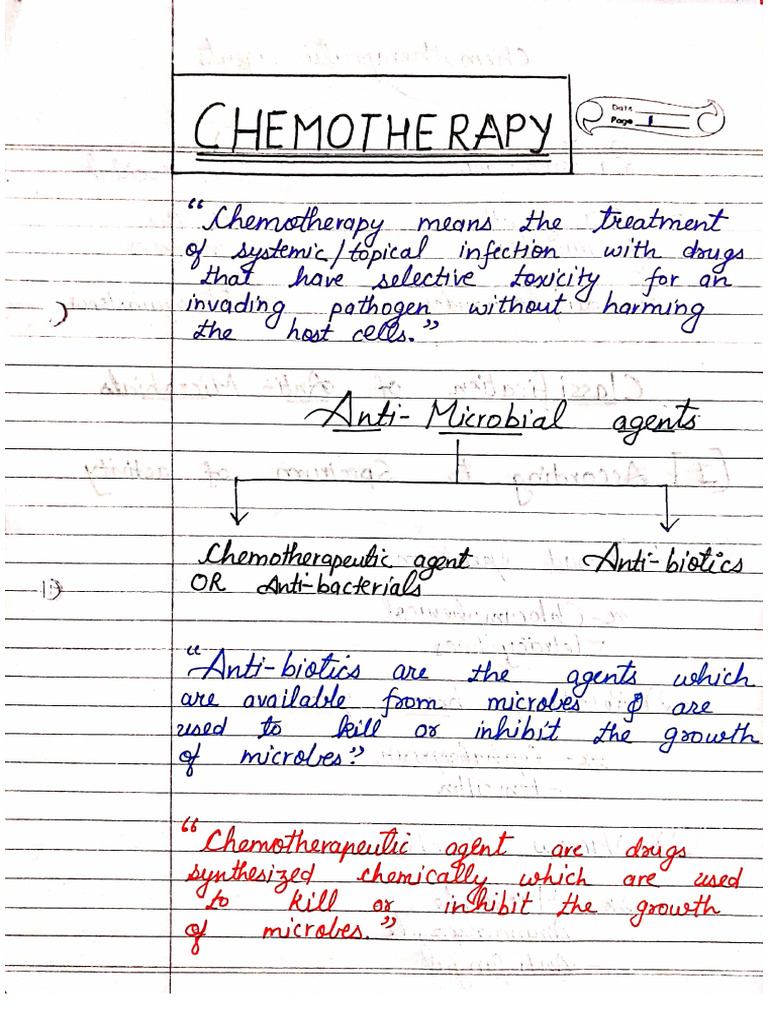 Date
Page 1
CHEMOTHERAPY
"Chemotherapy means the treatment
of systemic/topical infection with drugs
that have selective toxicity for an
invading pathogen without harming
the host cells."
Anti-Microbial agents
Chemotherapeutic agent
OR Anti-bacterials
Anti-biotics
"Anti-biotics are the agents which
are available from microbes & are
used to kill or inhibit the growth
of microbes"
"Chemotherapeutic agent are drugs
synthesized chemically which are used
to kill or inhibit the growth
of microbes."